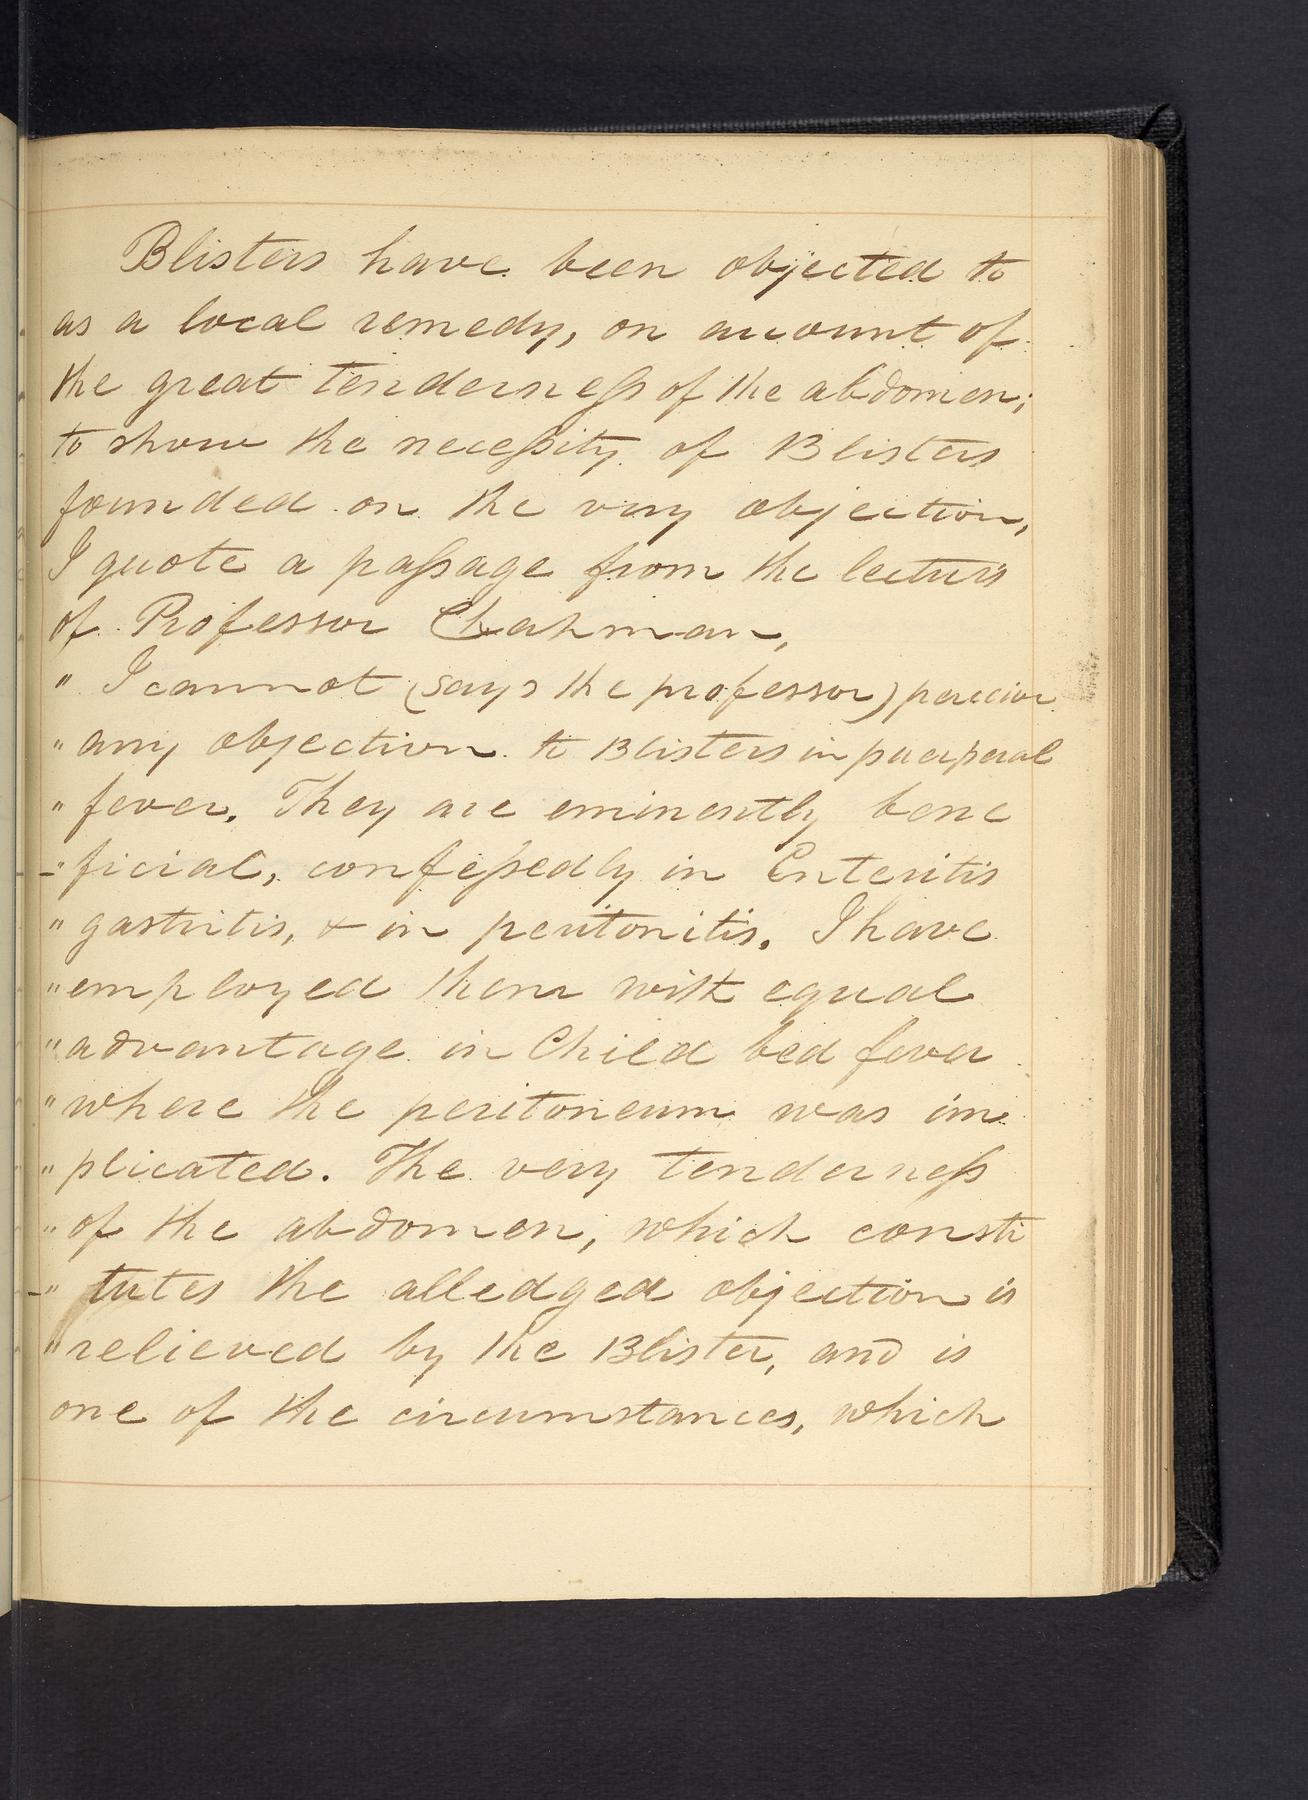 Blisters have been objected to
as a local remedy, on account of
the great tenderness of the abdomen;
to show the necessity of Blisters
founded on the very objection,
I quote a passage from the lecturs
of Professor Chapman,
" I cannot (says the professor) perceive
" any objection to Blisters in puerperal
" fever. They are eminently bene
-" ficial, confessedly in Enteritis
" gastritis, & in peritonitis. I have
" employed them with equal
" advantage in Child bed fever
" where the peritoneum was im
" plicated. The very tenderness
" of the abdomen, which consti
-" tutes the alledged objection is
" relieved by the Blister, and is
one of the circumstances, which